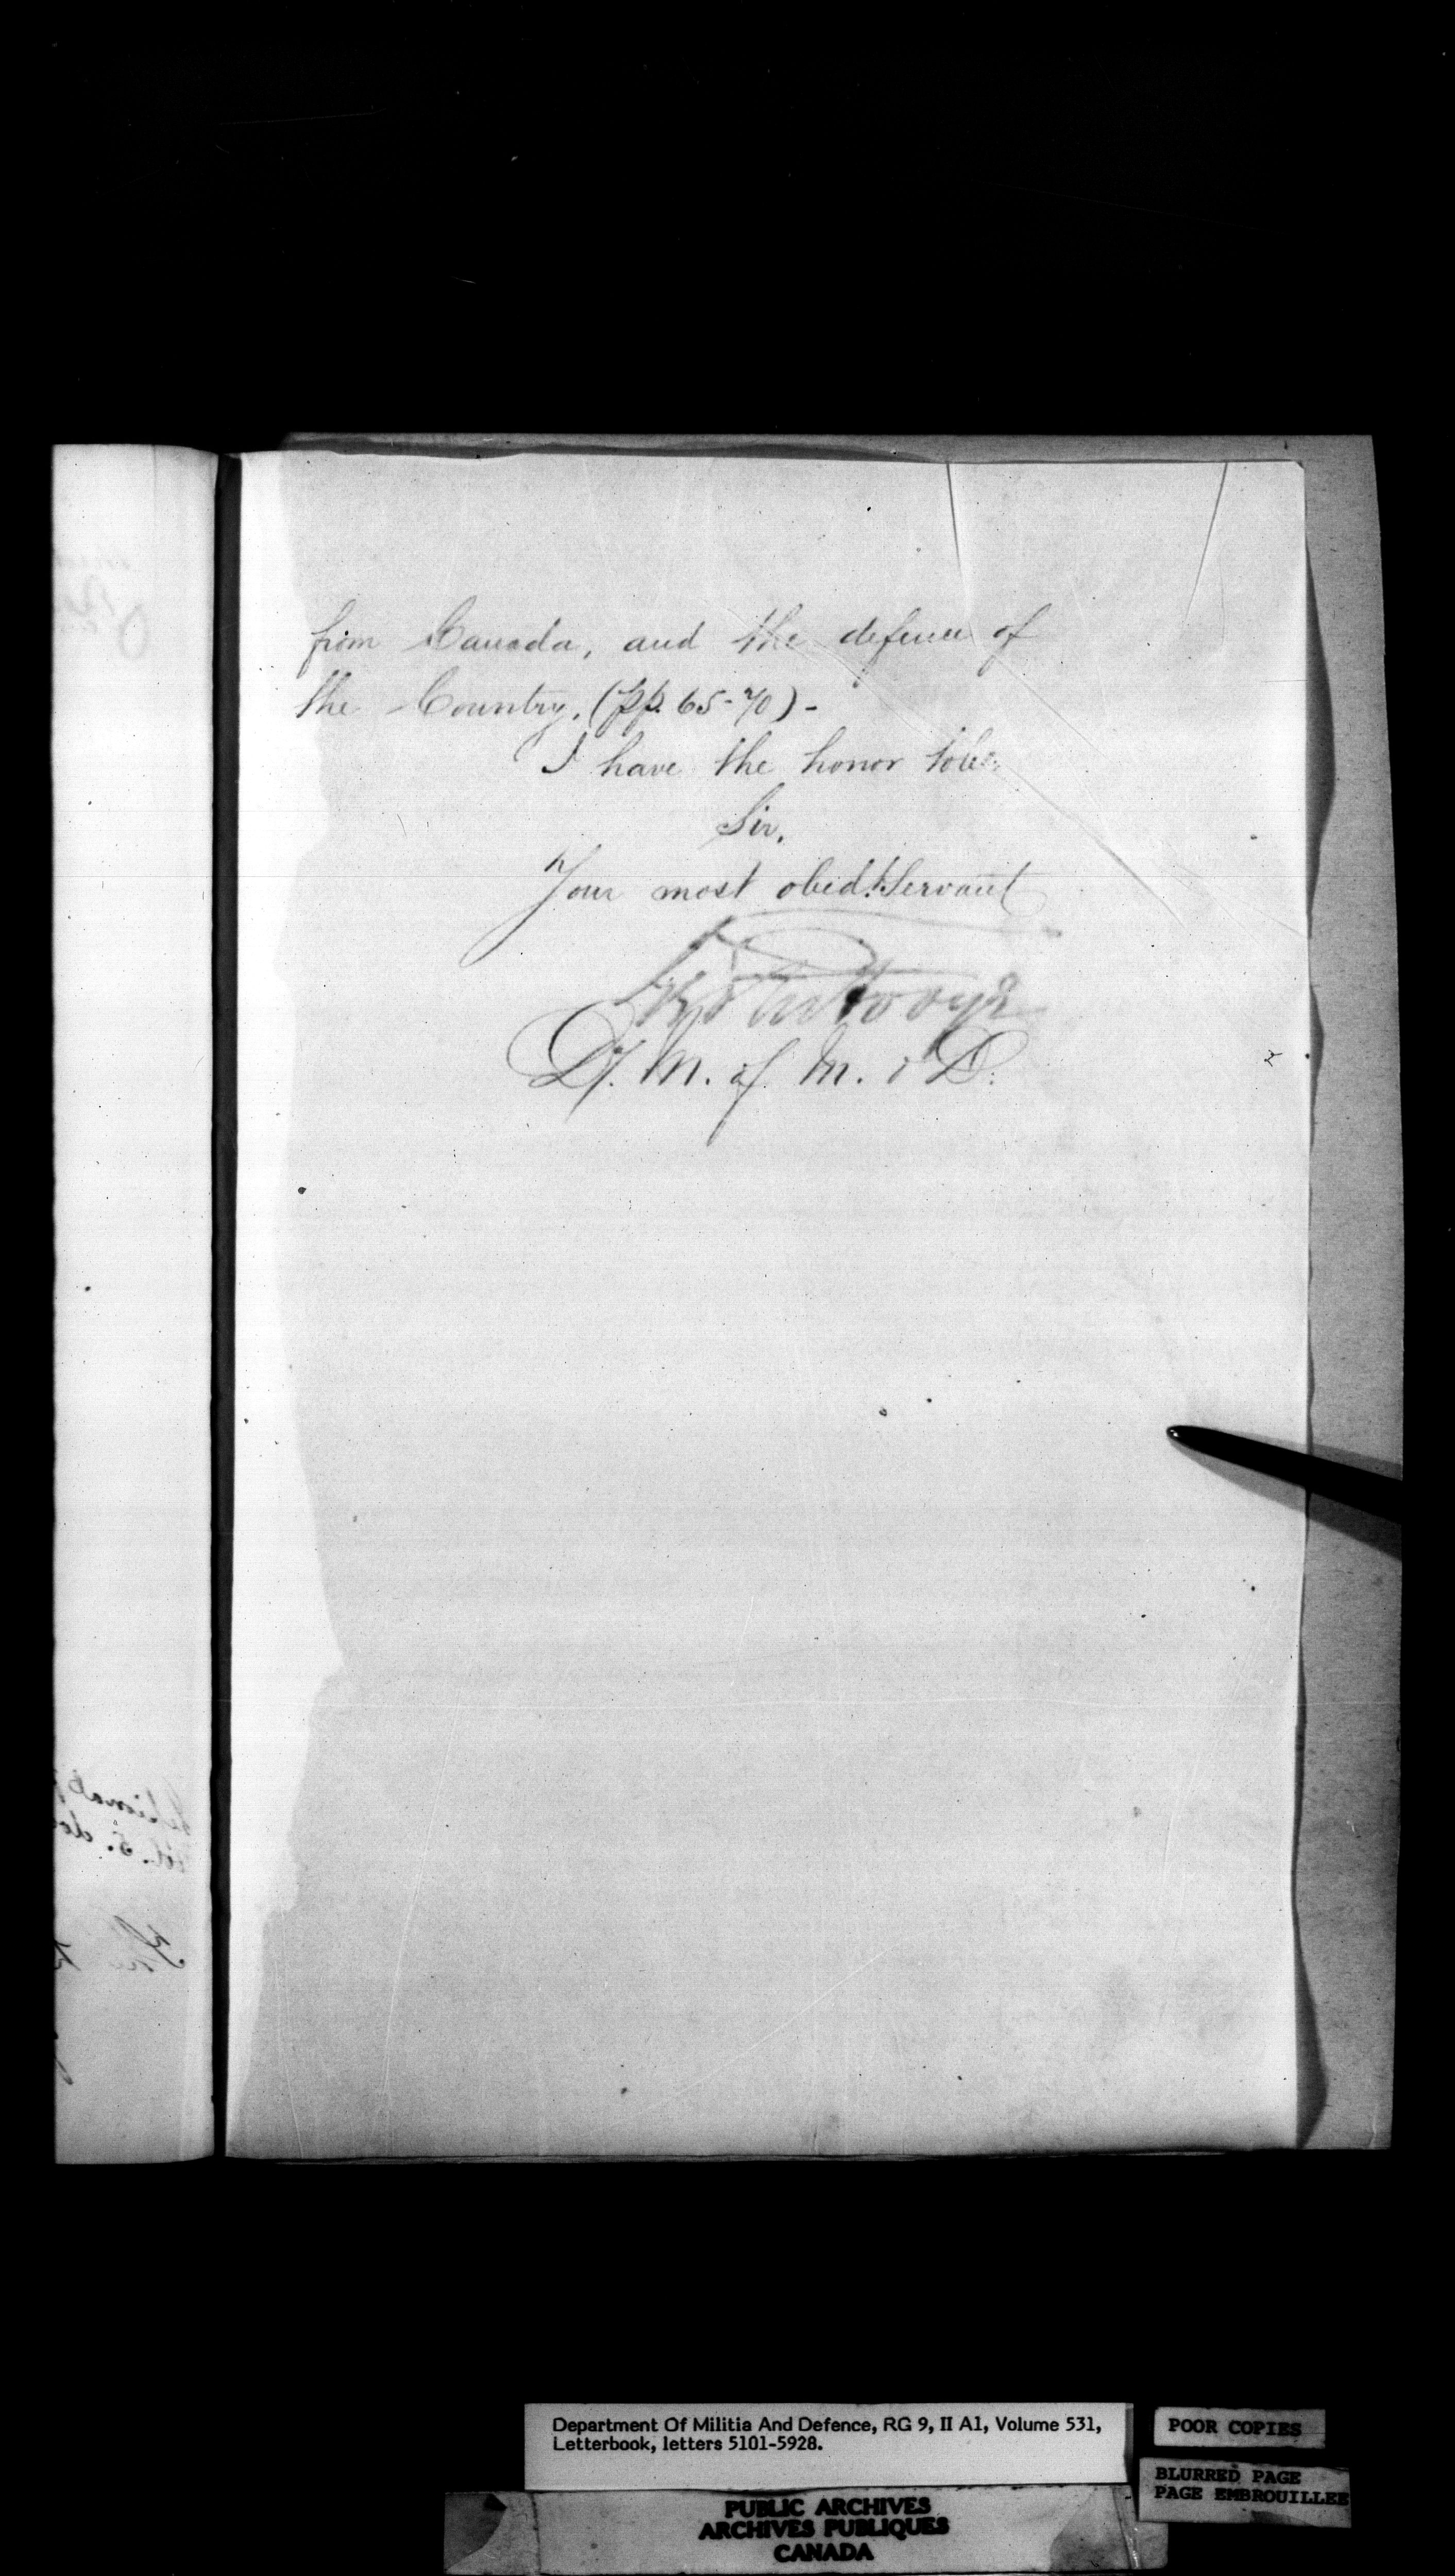 from Canada, and the defence of
the Country. (pp. 65-70) -
I have the honor to be
Sir,
Your most obedt. Servant
Df. M. of M. & D.
Department Of Militia And Defence, RG 9, II A1, Volume 531,
Letterbook, letters 5101-5928.
POOR COPIES
BLURRED PAGE
PAGE EMBROUILLEE
PUBLIC ARCHIVES
ARCHIVES PUBLIQUES
CANADA